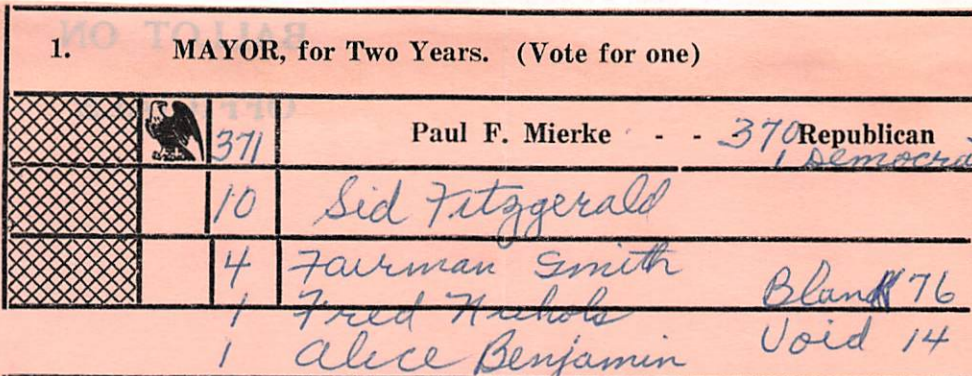 1. MAYOR, for Two Years. (Vote for one)
371 Paul F. Mierke - - 370 Republican
1 Democra
10 Sid Fitzgerald
4 Fairman Smith
Blank 76
1 Fred Nichols
Void 14
1 Alice Benjamin